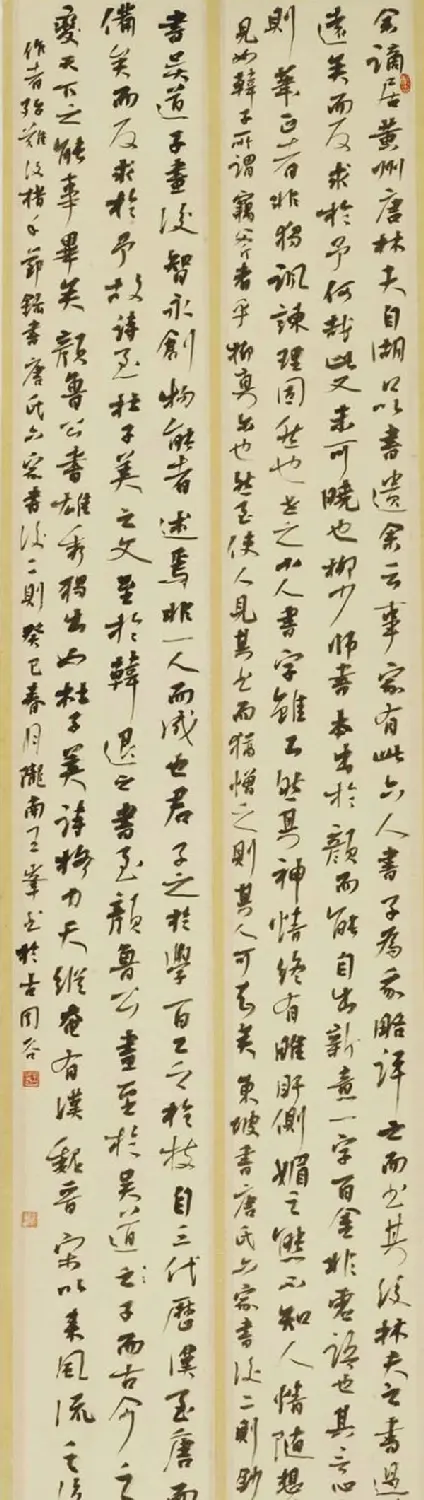 余謫居黃州唐林夫自湖口以書遺余云事家有此六人書子為我略評之而書其後林夫之書過
遠矣而反求於予何哉此又未可曉也柳少師書本出於顏而能自出新意一字百金非虛語也其言心
則筆正者非獨諷諫理固然也世之小人書字雖工然其神情終有睢盱側媚之態不知人情隨想
見如韓子所謂竊斧者乎抑真爾也然至使人見其書而猶憎之則其人可知矣東坡書唐氏六家書後二則鈔
書吳道子畫後智永創物能者述焉非一人而成也君子之於學百工之於技自三代歷漢至唐而
備矣而反求於予故詩至杜子美之文至於韓退之書至顏魯公畫至於吳道之子而古今之
變天下之能事畢矣顏魯公書雄秀獨出如杜子美詩格力天縱奄有漢魏晉宋以來風流之後
作者殆難復措手節錄書唐氏六家書後二則癸巳春月隴南王峯書於谷